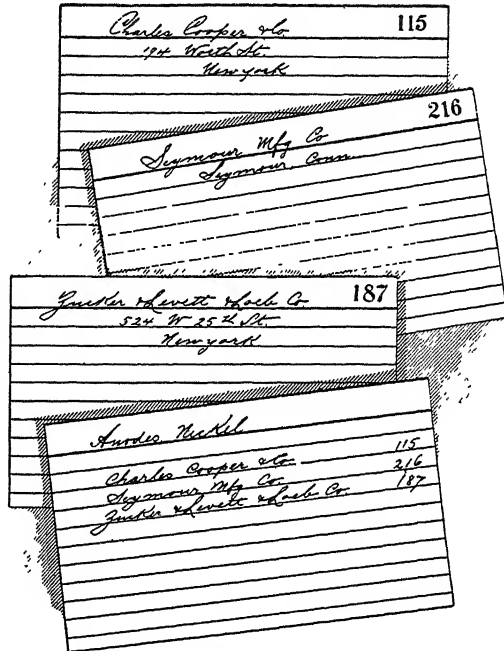 Charles Cooper & Co 115
194 Worth St.
New york
216
Seymour Mfg Co
Seymour, Conn.
Zucker & Levett & Loeb Co 187
524 W 25th St.
New york
Anodes Nickel
Charles Cooper & Co. 115
Seymour Mfg Co. 216
Zucker & Levett & Loeb Co. 187